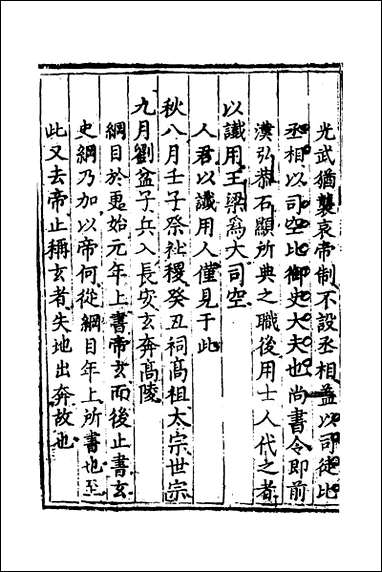 光武猶襲哀帝制不設丞相葢以司徒比
丞相以司空比御史大夫也尚書令即前
漢弘恭石顯所典之職後用士人代之者
以讖用王梁爲大司空
人君以讖用人僅見于此
秋八月壬子祭社稷癸丑祠髙祖太宗世宗
九月劉盆子兵入長安玄奔髙陵
綱目於更始元年上書帝玄而後止書玄
史綱乃加以帝何從綱目年上所書也至
此又去帝止稱玄者失地出奔故也